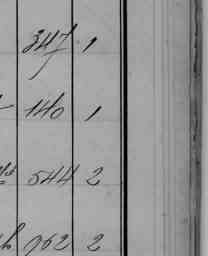 347 1
140 1
544 2
962 2